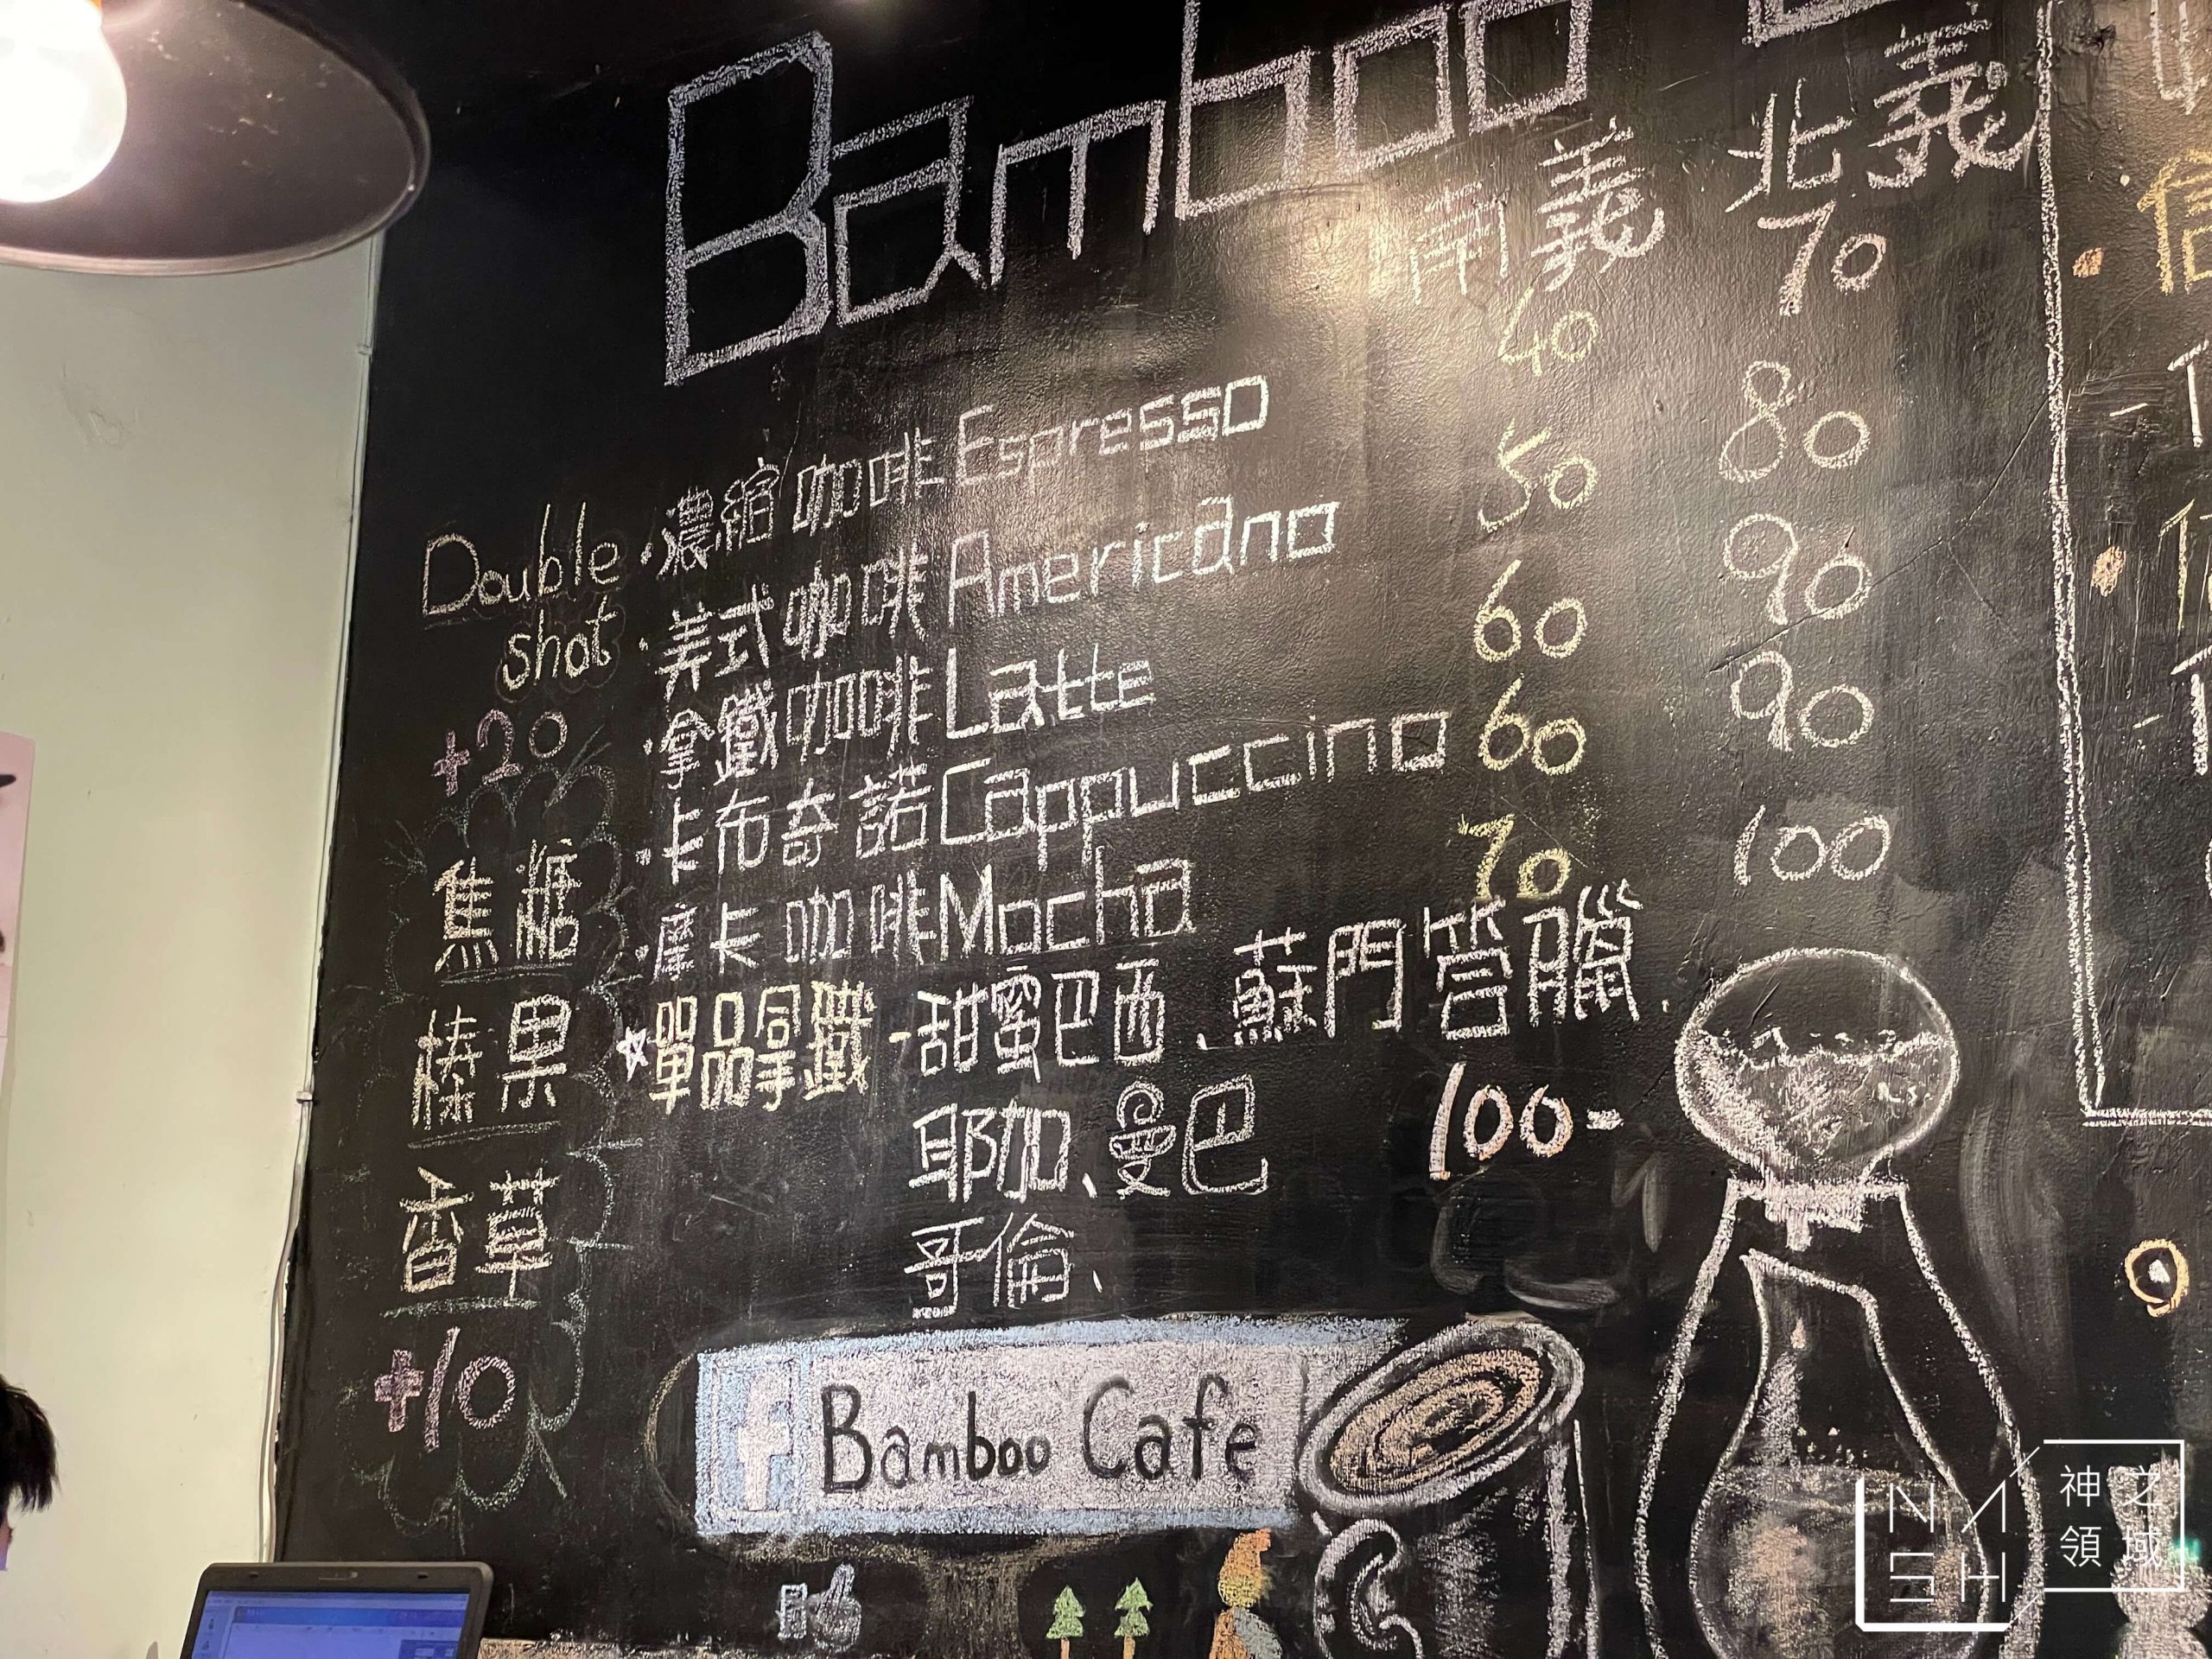 Bamboo
南義 北義
濃縮咖啡 Espresso 40 70
美式咖啡 Americano 50 80
拿鐵咖啡 Latte 60 90
卡布奇諾 Cappuccino 60 90
摩卡咖啡 Mocha 70 100
☆單品拿鐵-甜蜜巴西、蘇門答臘、
耶加、曼巴 100-
哥倫、
Double
shot
+20
焦糖
榛果
香草
+10
f Bamboo Cafe
NASH
神之
領域